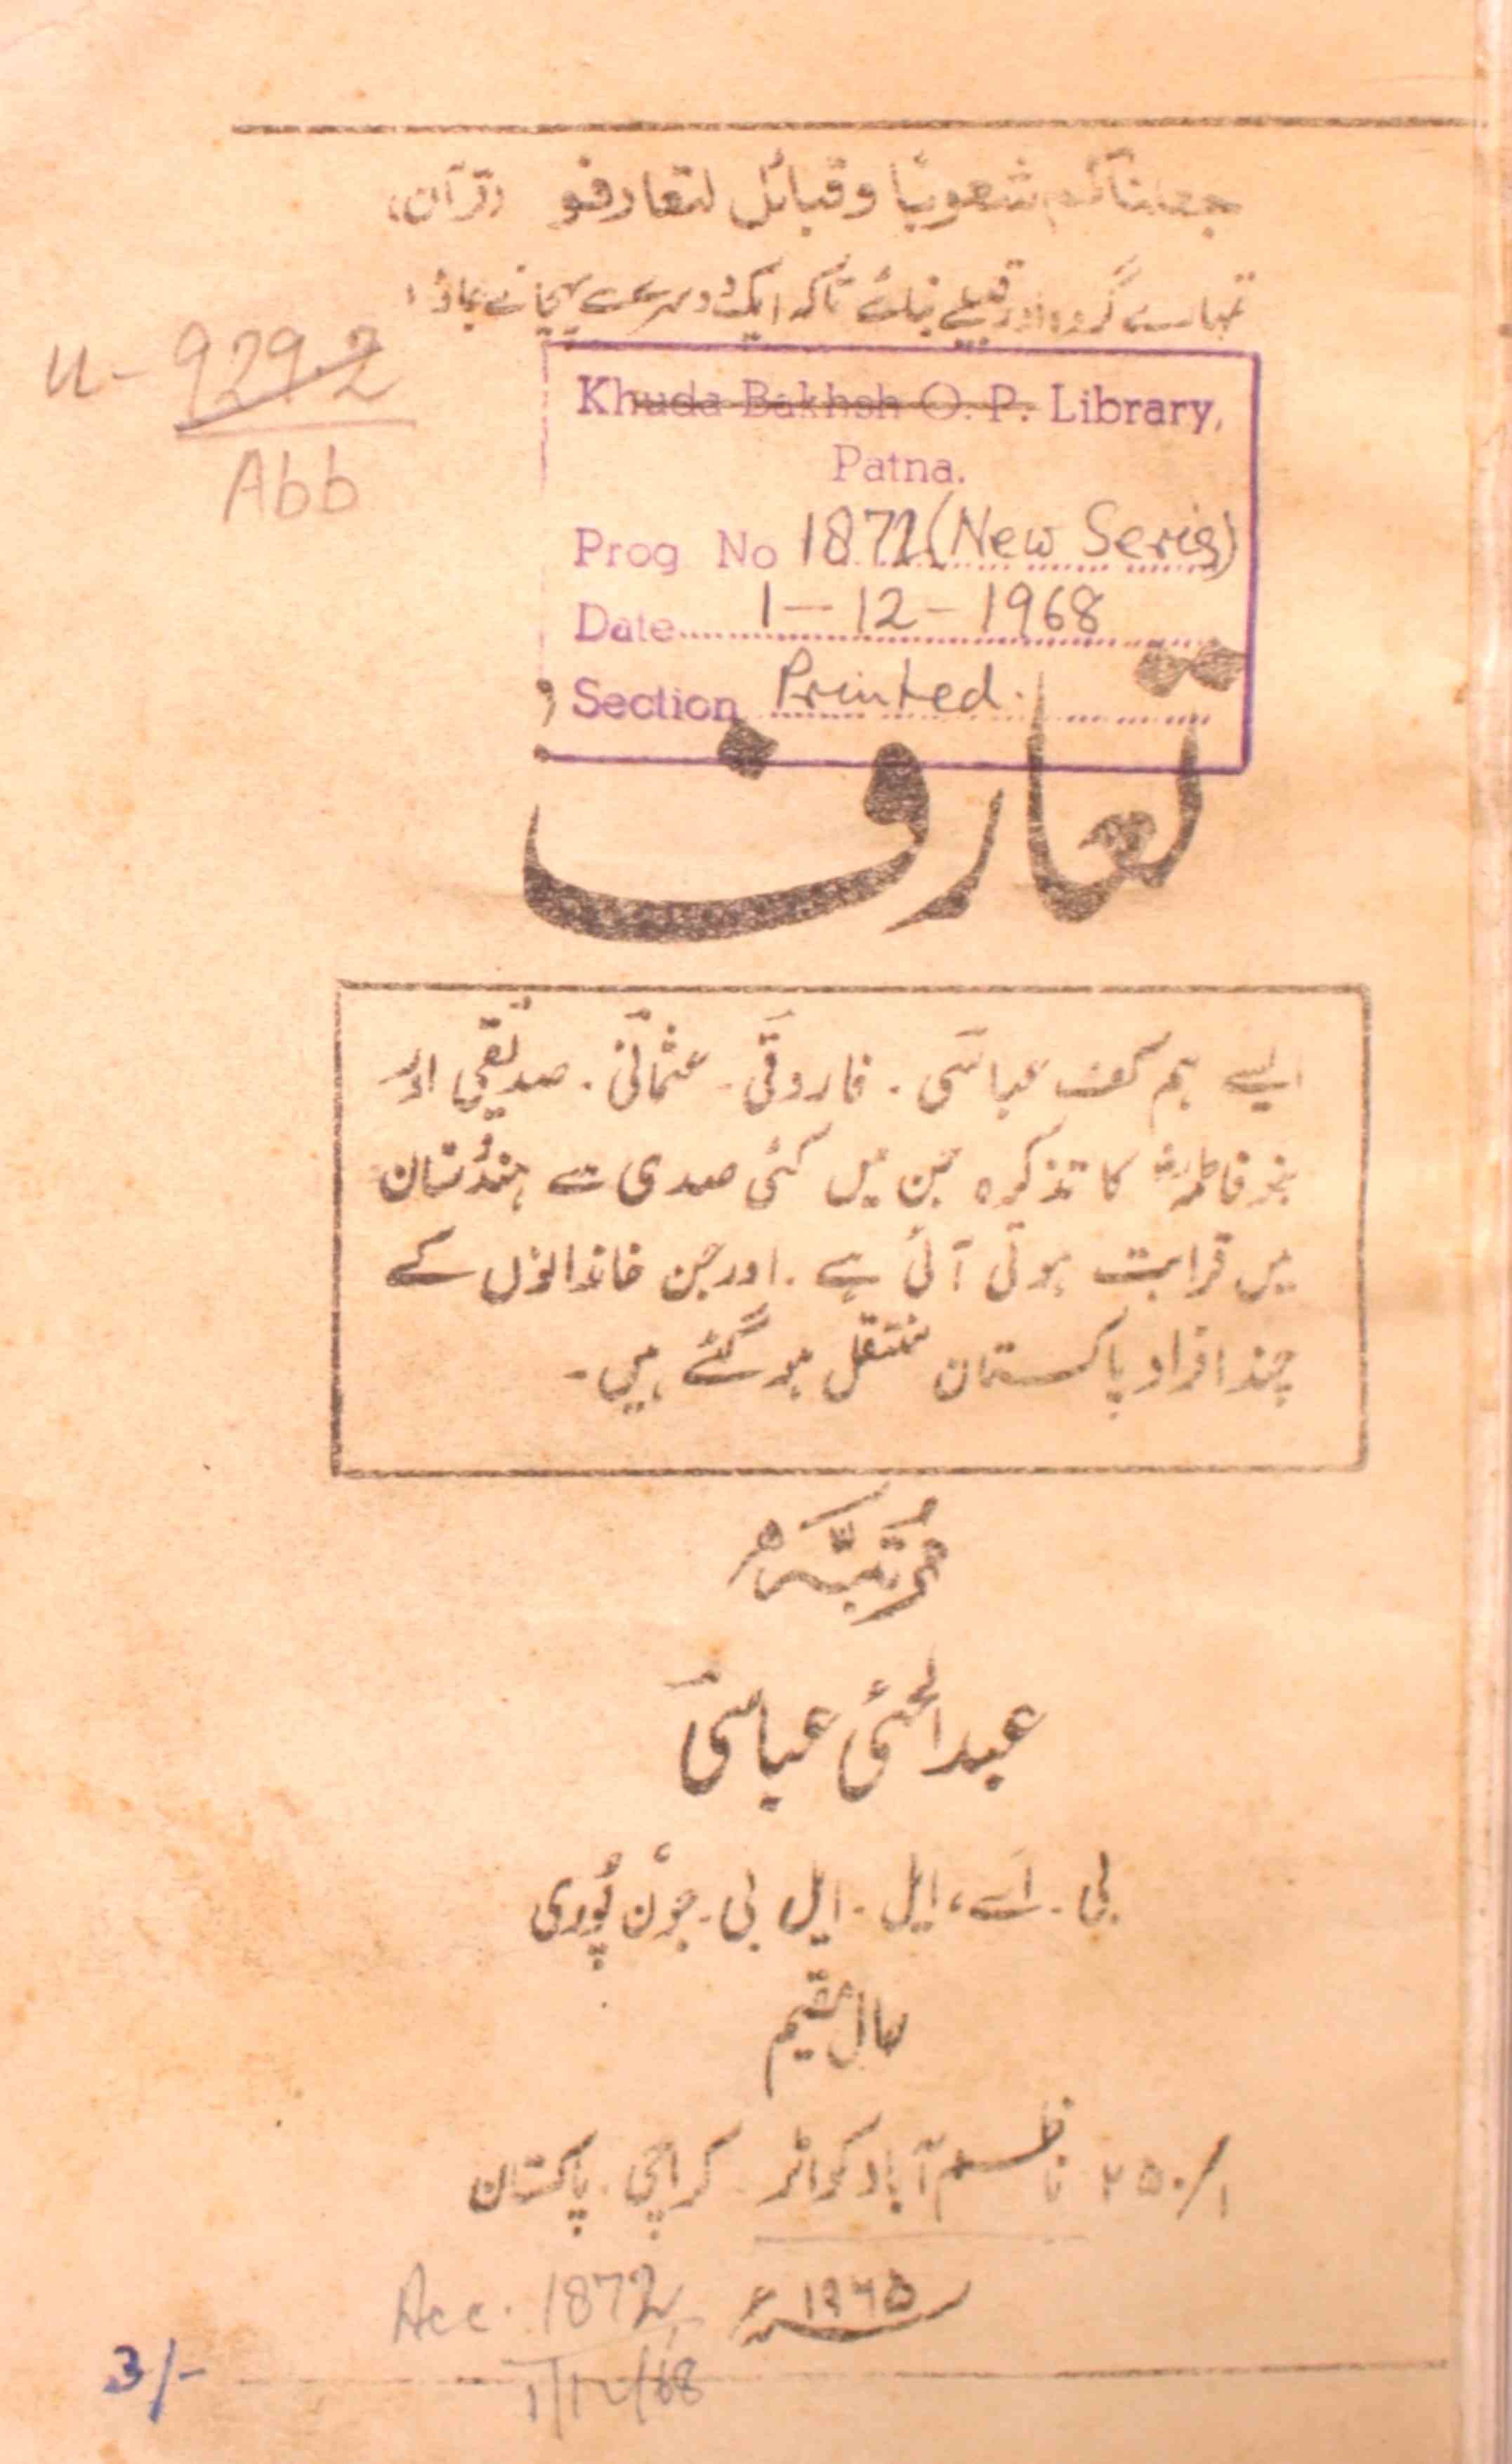 جعلناكم شعوبًا وقبائل لتعارفو (قرآن)
تمہارے گروہ اور قبیلے بنائے تاکہ ایک دوسرے سے پہچانے جاؤ
U- 929.2
Abb
Khuda Bakhsh O. P. Library,
Patna.
Prog No 1872 (New Series)
Date 1-12-1968
Section Printed.
تعارف
ایسے ہم کفو عباسی ۔ فاروقی ۔ عثمانی ۔ صدیقی اور
بنو فاطمہؓ کا تذکرہ جن میں کئی صدی سے ہندوستان
میں قرابت ہوتی آئی ہے ۔ اور جن خاندانوں کے
چند افراد پاکستان منتقل ہوگئے ہیں ۔
مُرتبہ
عبدالحئی عباسی
بی ۔ اے، ایل ۔ ایل بی ۔ جون پُوری
حال مقیم
۲۵۰/۱ ناظم آباد کوارٹر ۔ کراچی ۔ پاکستان
۱۹۶۵ء
Acc. 1872
1/12/68
3/-